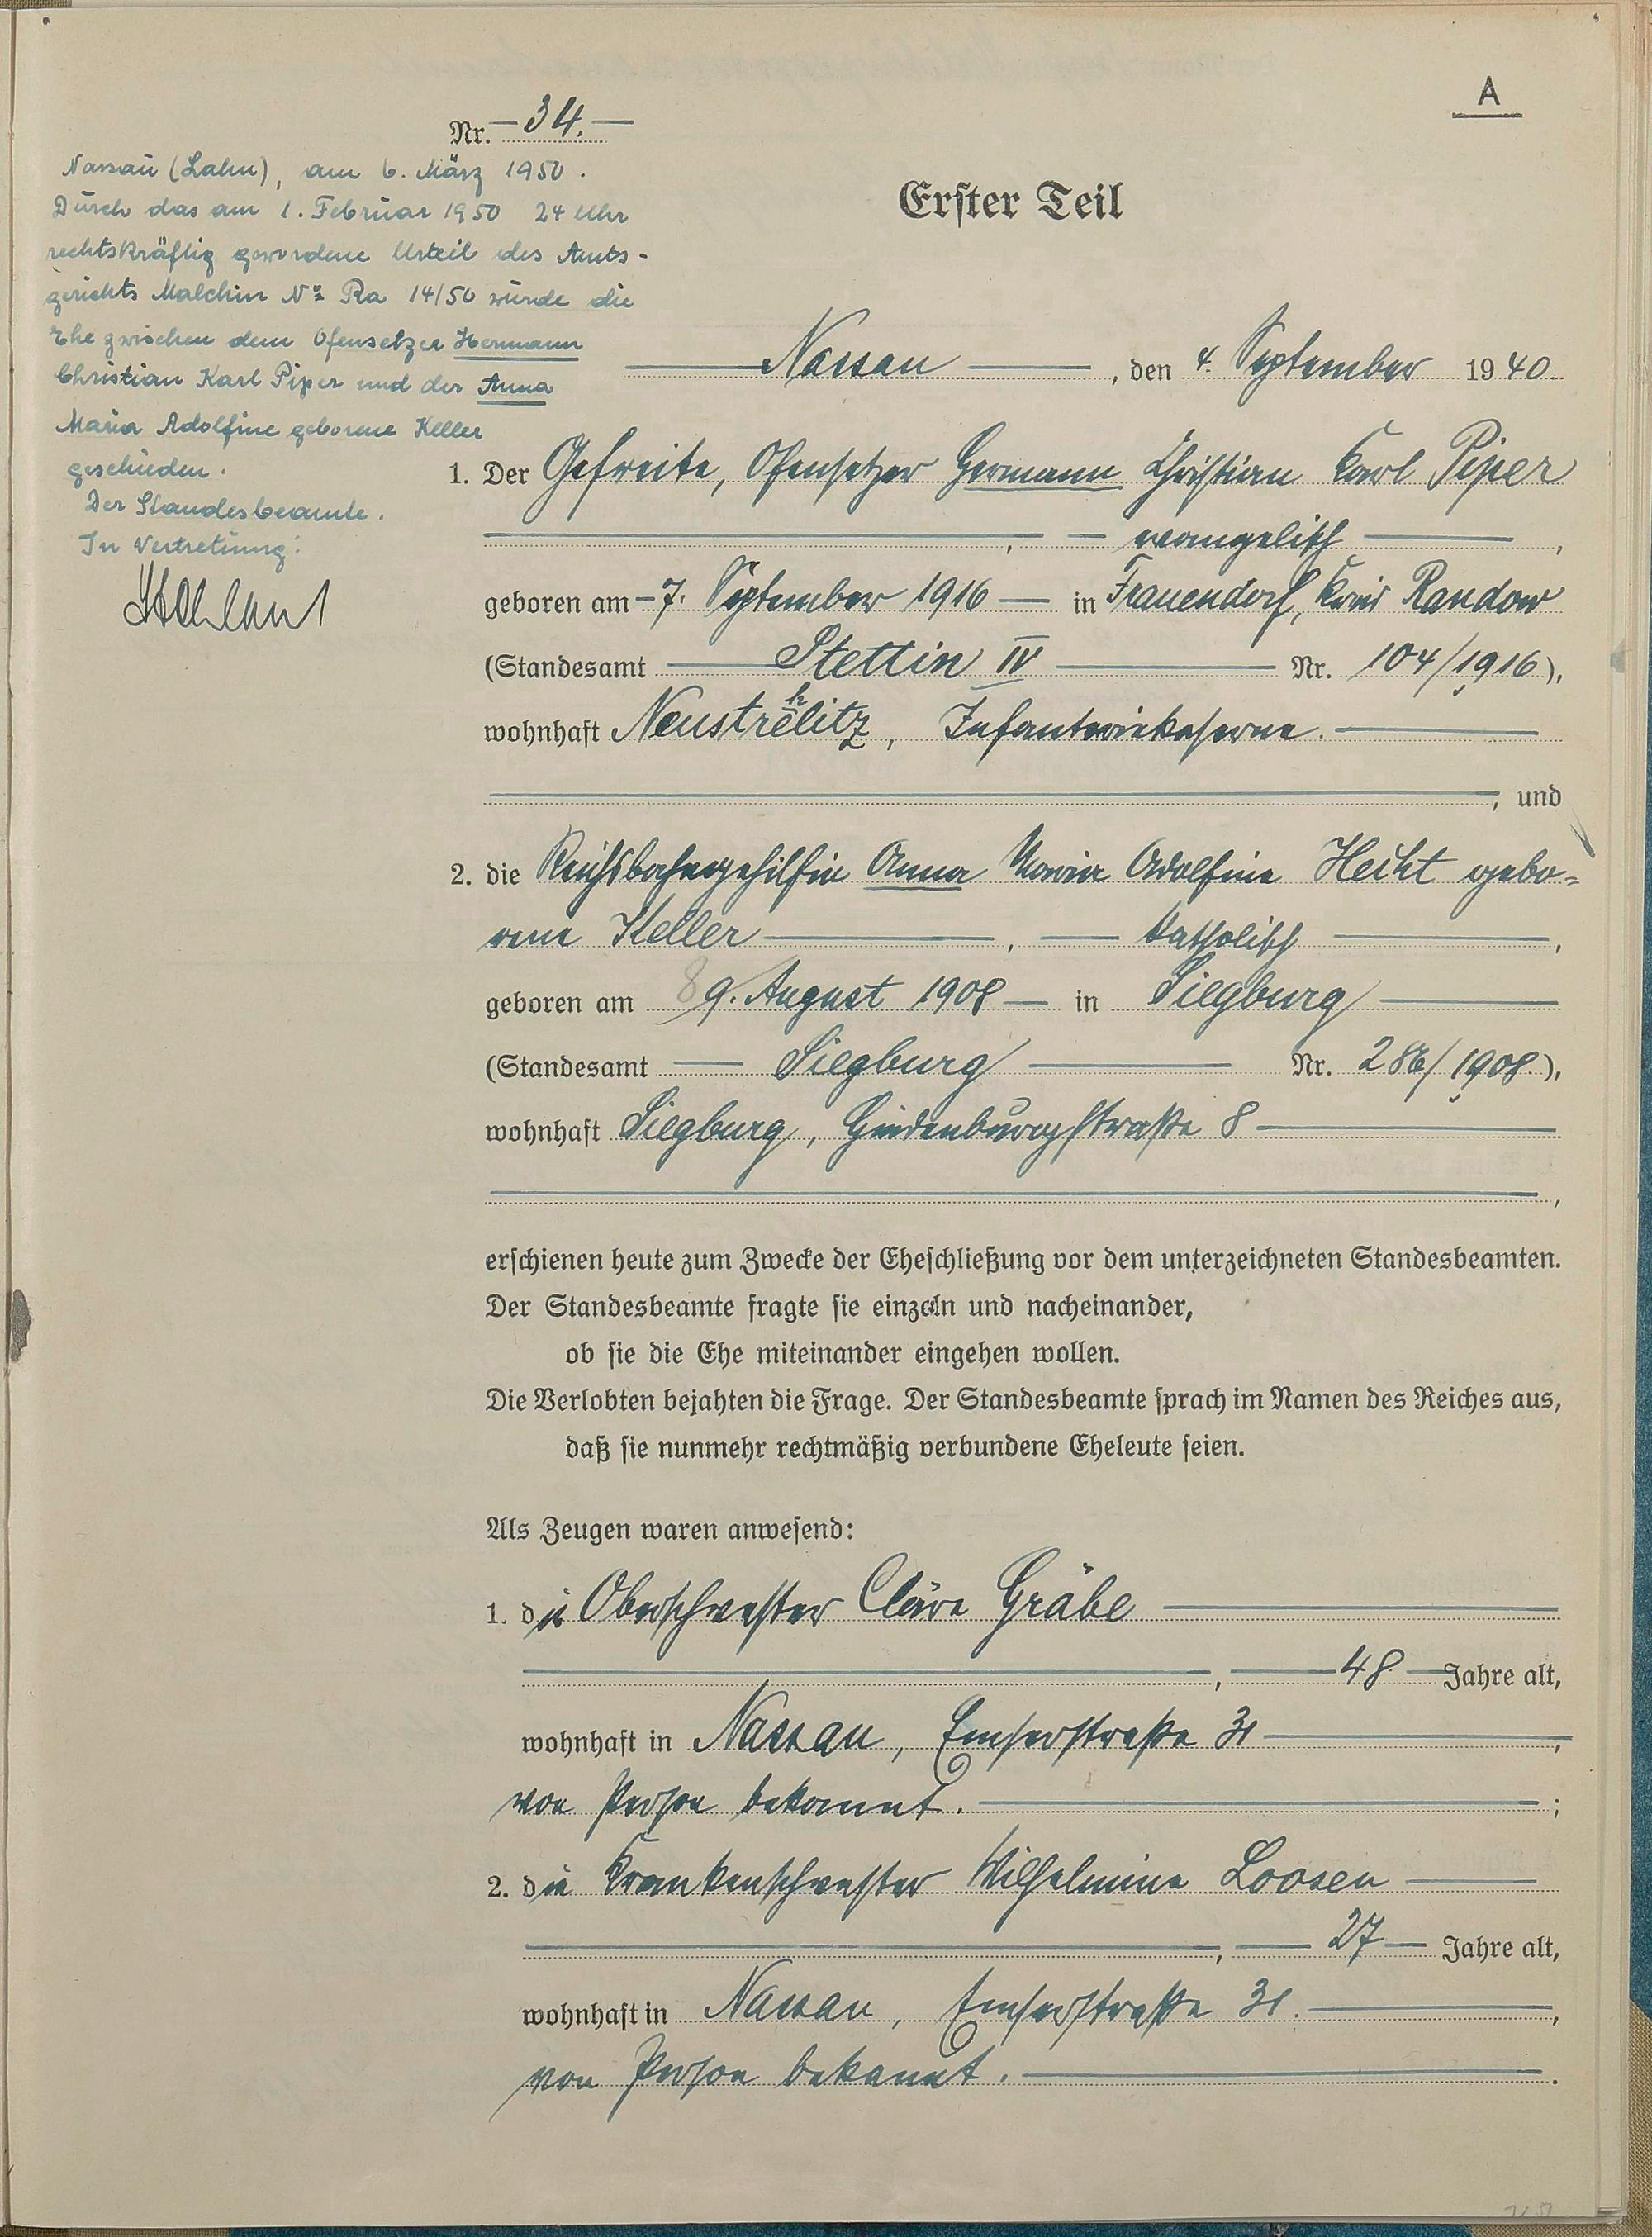 A
Nr. 34.
Nassau (Lahn), am 6. März 1950.
Durch das am 1. Februar 1950 24 Uhr
rechtskräftig gewordene Urteil des Amts-
gerichts Malchin No Ra 14/50 wurde die
Ehe zwischen dem Ofensetzer Hermann
Christian Karl Piper und der Anna
Maria Adolfine geborene Keller
geschieden.
Der Standesbeamte.
In Vertretung:
Erster Teil
Nassau, den 4. September 1940
1. Der Gefreite, Ofensetzer Hermann Christian Karl Piper
, evangelisch,
geboren am 7. September 1916 in Frauendorf, Kreis Randow
(Standesamt Stettin IV Nr. 104/1916),
wohnhaft Neustrehlitz, Infanteriekaserne.
, und
2. die Reichsbahngehilfin Anna Maria Adolfine Hecht gebo=
rene Keller, katholisch,
geboren am 8 9. August 1908 in Siegburg
(Standesamt Siegburg Nr. 286/1908),
wohnhaft Siegburg, Hindenburgstraße 8
,
erschienen heute zum Zwecke der Eheschließung vor dem unterzeichneten Standesbeamten.
Der Standesbeamte fragte sie einzeln und nacheinander,
ob sie die Ehe miteinander eingehen wollen.
Die Verlobten bejahten die Frage. Der Standesbeamte sprach im Namen des Reiches aus,
daß sie nunmehr rechtmäßig verbundene Eheleute seien.
Als Zeugen waren anwesend:
1. die Oberschwester Cläre Gräbe
, 48 Jahre alt,
wohnhaft in Nassau, Emserstraße 31,
von Person bekannt. ;
2. die Krankenschwester Wilhelmine Loosen
, 27 Jahre alt,
wohnhaft in Nassau, Emserstraße 31.,
von Person bekannt. .